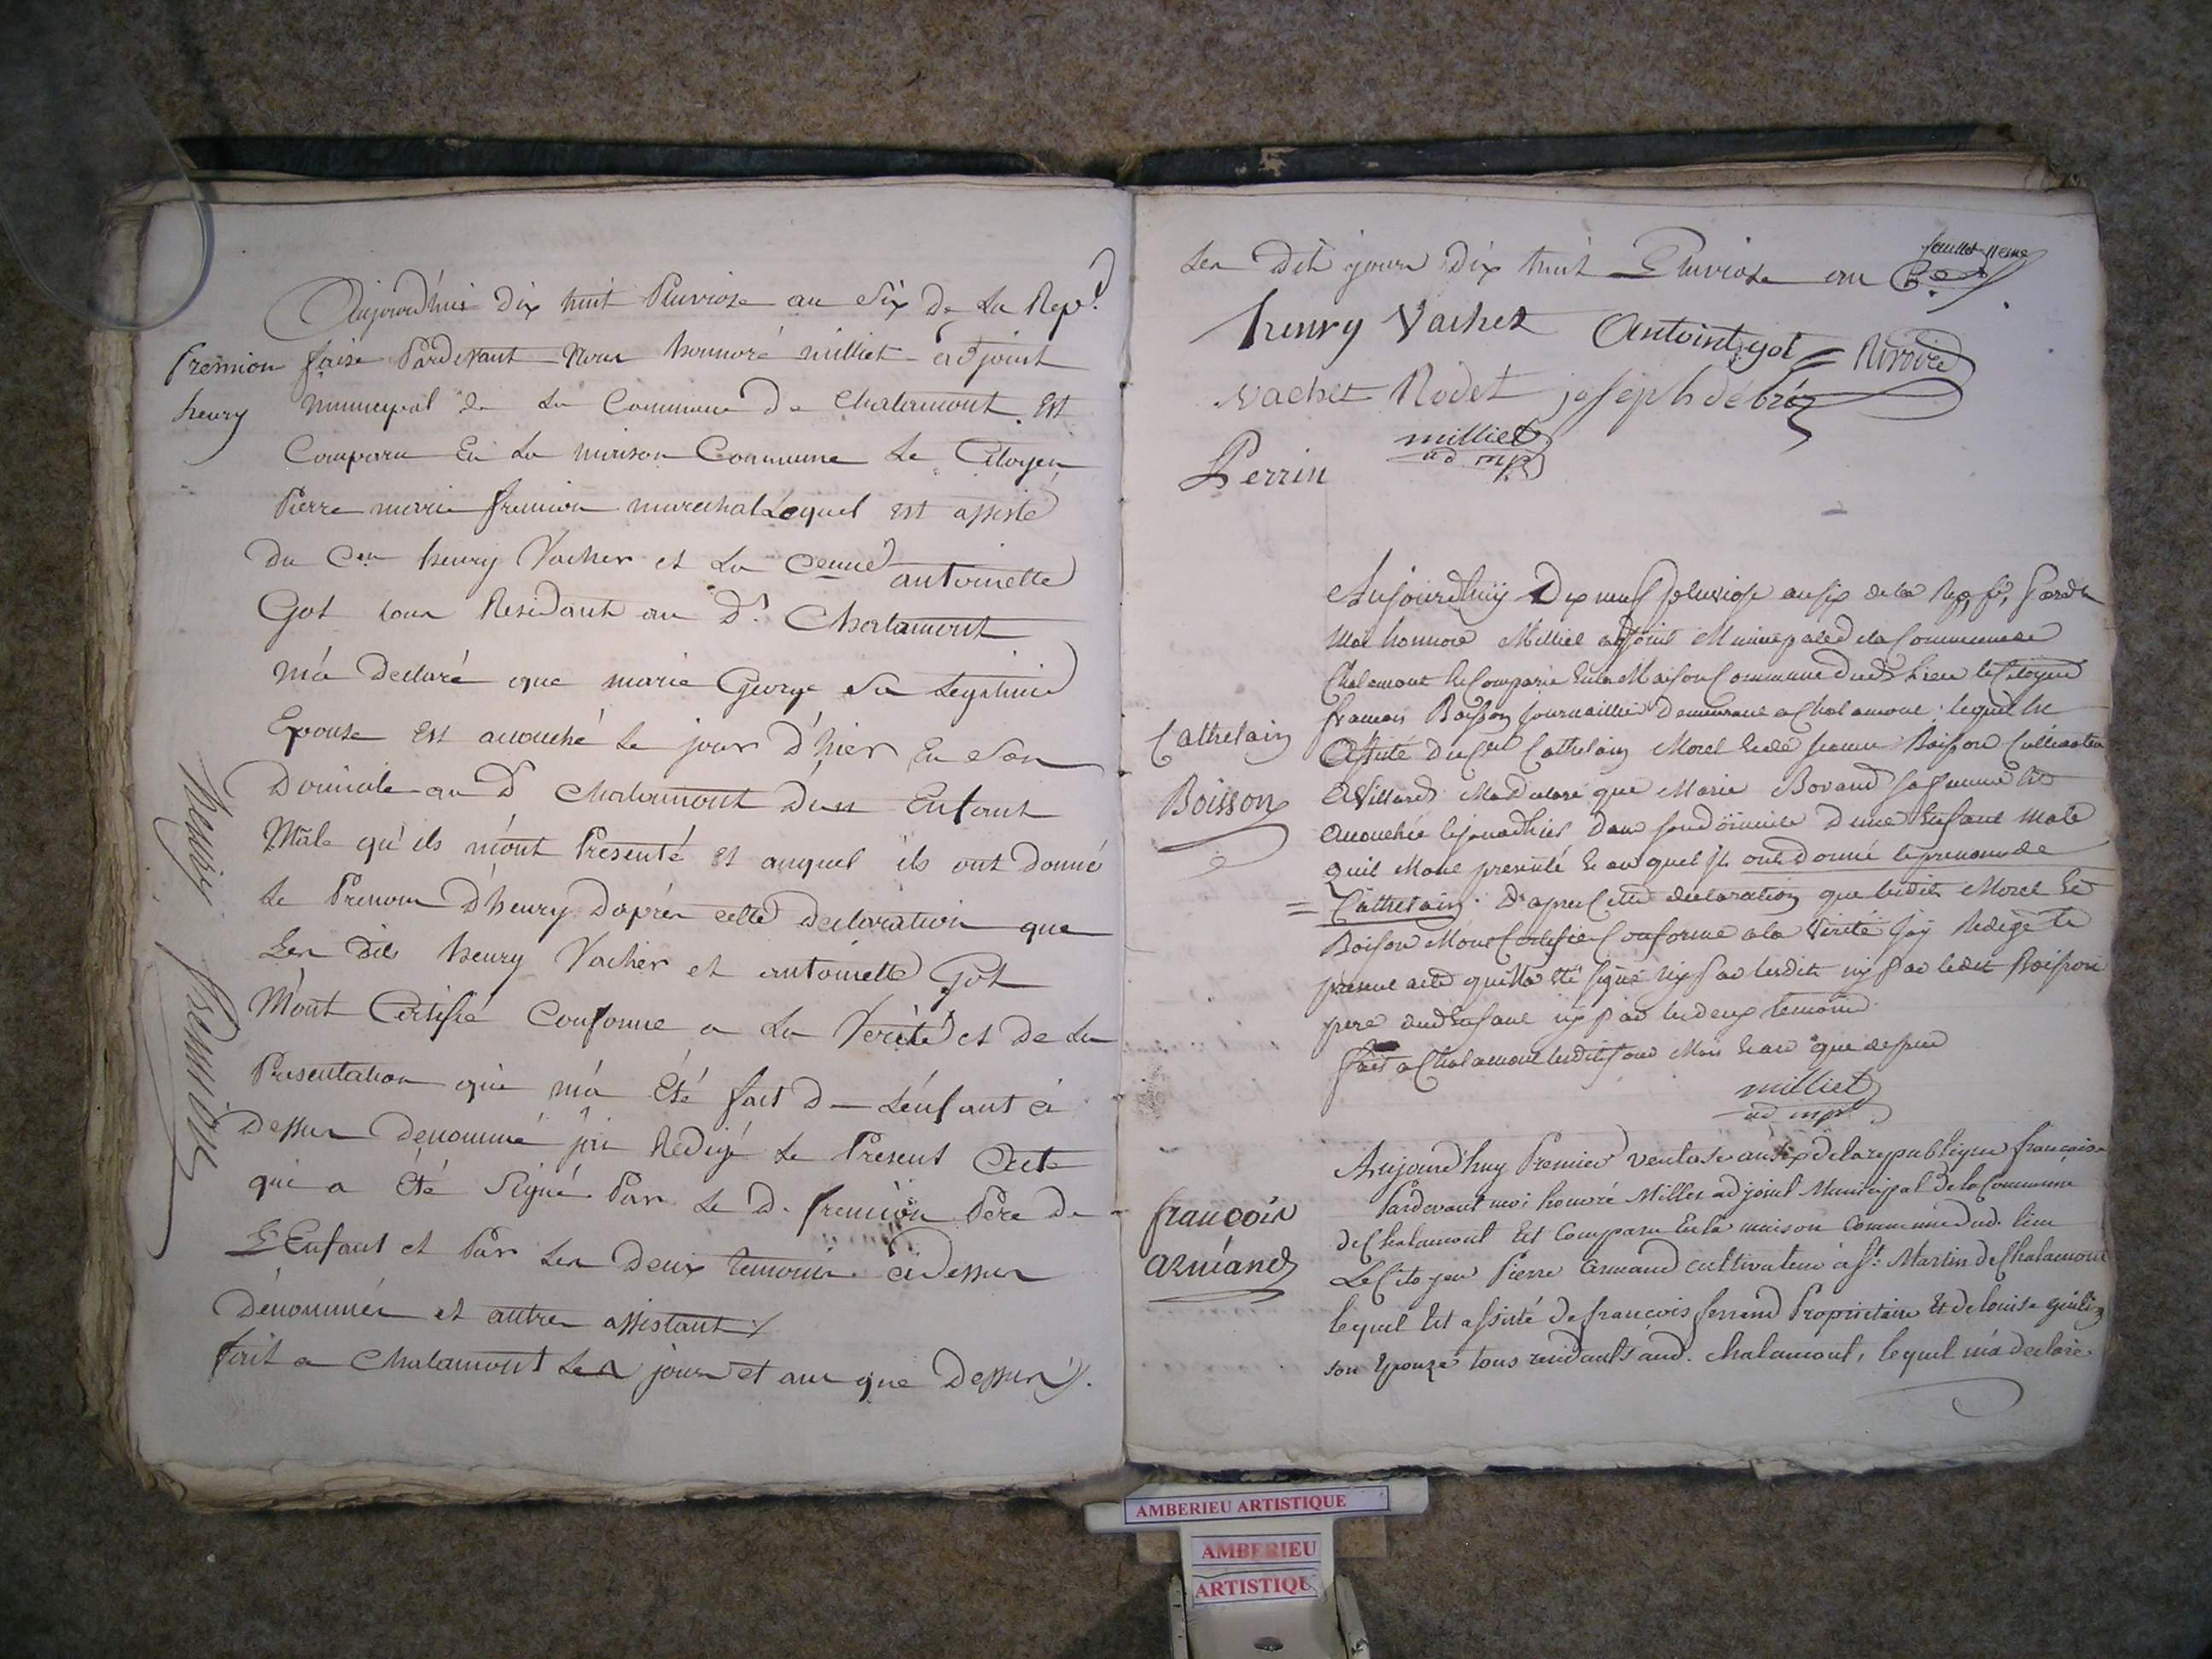 Aujourd'hui dix huit Pluviose an Six De La Rep.
fremion
henry
faise Pardevant Nous honnoré milliet adjoint
municipal de La Commune De Chalamont Est
Comparu En La maison Commune Le Citoyen
Pierre marie fremion marechal Lequel est assisté
du Cen henry Vacher et La Cenne antoinette
Got tous Residant au D. Chalamont
m'a Declaré que marie George Sa Legitime
Epouse Est acouché Le jour D'hier En Son
Domicile au D Chalamont D'un Enfant
Mâle qu'ils m'ont Presenté et auquel ils ont donné
Le Prenom D'henry D'aprés cette Declaration que
Les dits henry Vacher et antoinette Got
M'ont Certifié Conforme a La Verité et De La
Presentation qui m'a Eté fait D L'enfant ci
Dessus Denommé j'ai Redigé Le Present Acte
qui a Eté Signé Par Le D. fremion Pére De
L'Enfant et Par Les Deux temoins ci Dessus
Dénommés et autres assistant
fait a Chalamont Les jour et an que Dessus
henry fremion
Les Dit jour Dix huit Pluviose an 6e
feuillet 11eme
henry Vachez Antoint got
vachet Rodet joseph débróz
Perrin
milliet
ad mpl
Cathelain
Boisson
Aujourdhuy Dix neuf pluviose an six de la Rep, fr, Pardt
Moi honnore Milliet adjoint Municipale de la Commune de
Chalamont Est Comparu en la Maison Commune dud Lieu le Citoyen
francois Boisson journaillier Demeurant a Chalamont lequel est
Assisté du Cen Cathelain Morel et de jeanne Boisson Cultivateur
a Villard Ma declaré que Marie Bovand sa femme est
acouchée le jour dhier dans son domicile dune Enfant Male
quil Mont presenté et au quel ils ont donné le prenom de
= Cathelain. D'apres Cette declaration que lesdits Morel et
Boison Mont Certifie Conforme a la Verité jay Redigé le
present acte quil na été signé ny par lesdits ny par ledit Boisson
pere dud Enfant ny par les deux temoins
fait a Chalamont lesdits jour Mois et an que dessus
milliet
ad mpl
françois
arméand
Aujourd'huy Premier ventose an six de la republique française
Pardevant moi honoré Millet adjoint Municipal de la Commune
de Chalamont Est Comparu En la maison commune dud. lieu
Le Citoyen Pierre Armand cultivateur à St. Martin de Chalamont
lequel Est assisté de francois ferrand Proprietaire Et de louise
son Epouze tous residants aud. chalamont, lequel m'a declaré
AMBERIEU ARTISTIQUE
AMBERIEU
ARTISTIQUE